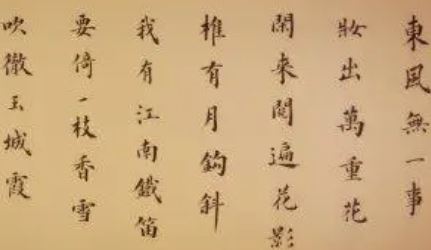 東風無一事
妝出萬重花
閑來閱遍花影
惟有月鉤斜
我有江南鐵笛
要倚一枝香雪
吹徹玉城霞